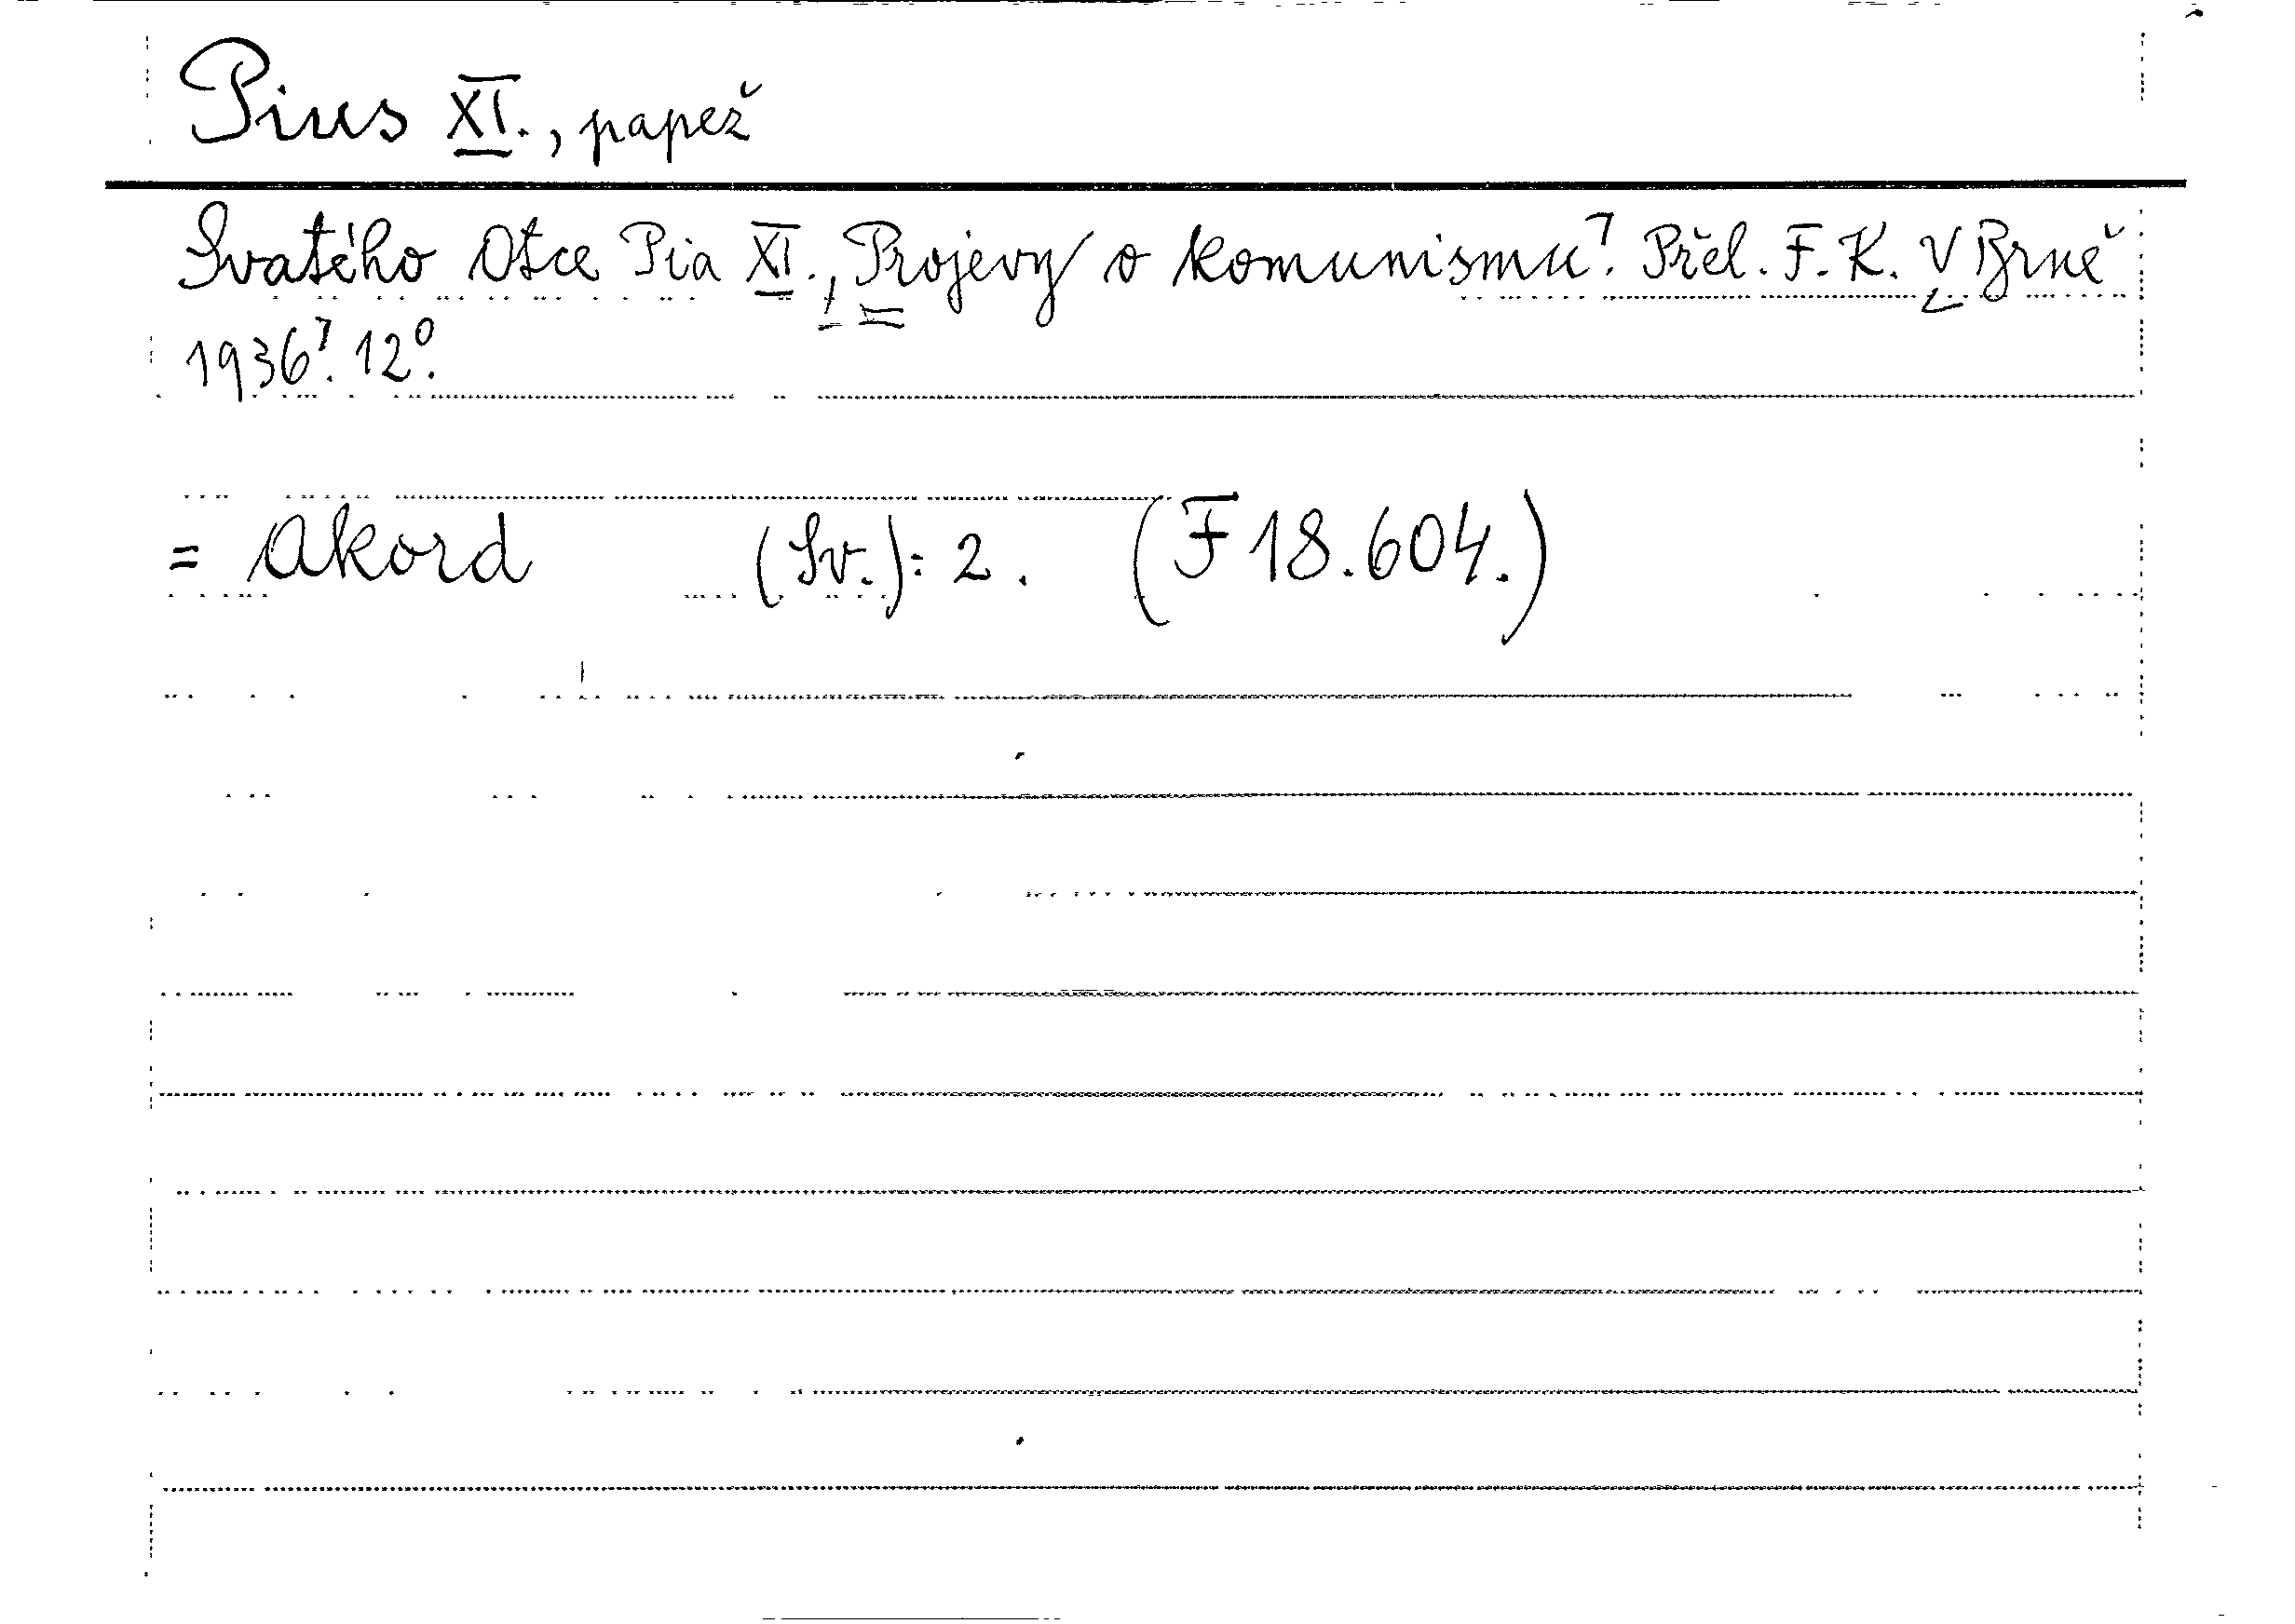 Pius XI., papež
Svatého Otce Pia XI., Projevy o komunismu⁊. Přel. F. K. V Brně
1936⁊. 12°.
= Akord (Sv.): 2. (F 18.604.)